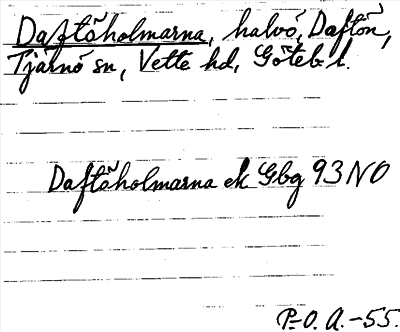 Daftöholmarna, halvö, Daftön,
Tjärnö sn, Vette hd, Göteb l.
Daftöholmarna ek Gbg 93 NO
P.-O. A. -55.